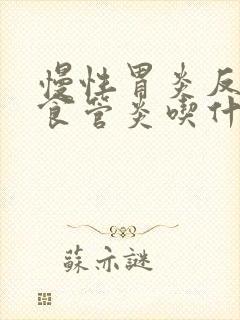 慢性胃炎反
食管炎喫什
蘇亦謎